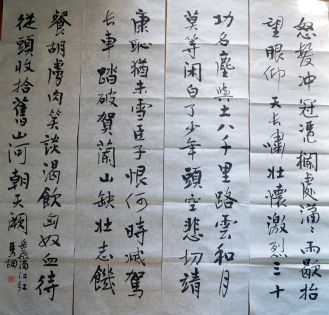 怒髮冲冠凴欄處瀟〻雨歇抬
望眼仰天長嘯壯懷激烈三十
功名塵與土八千里路雲和月
莫等闲白了少年頭空悲切靖
康恥猶未雪臣子恨何時滅駕
長車踏破賀蘭山缺壯志饑
餐胡虜肉笑談渴飲匈奴血待
從頭收拾舊山河朝天闕
岳飛滿江紅